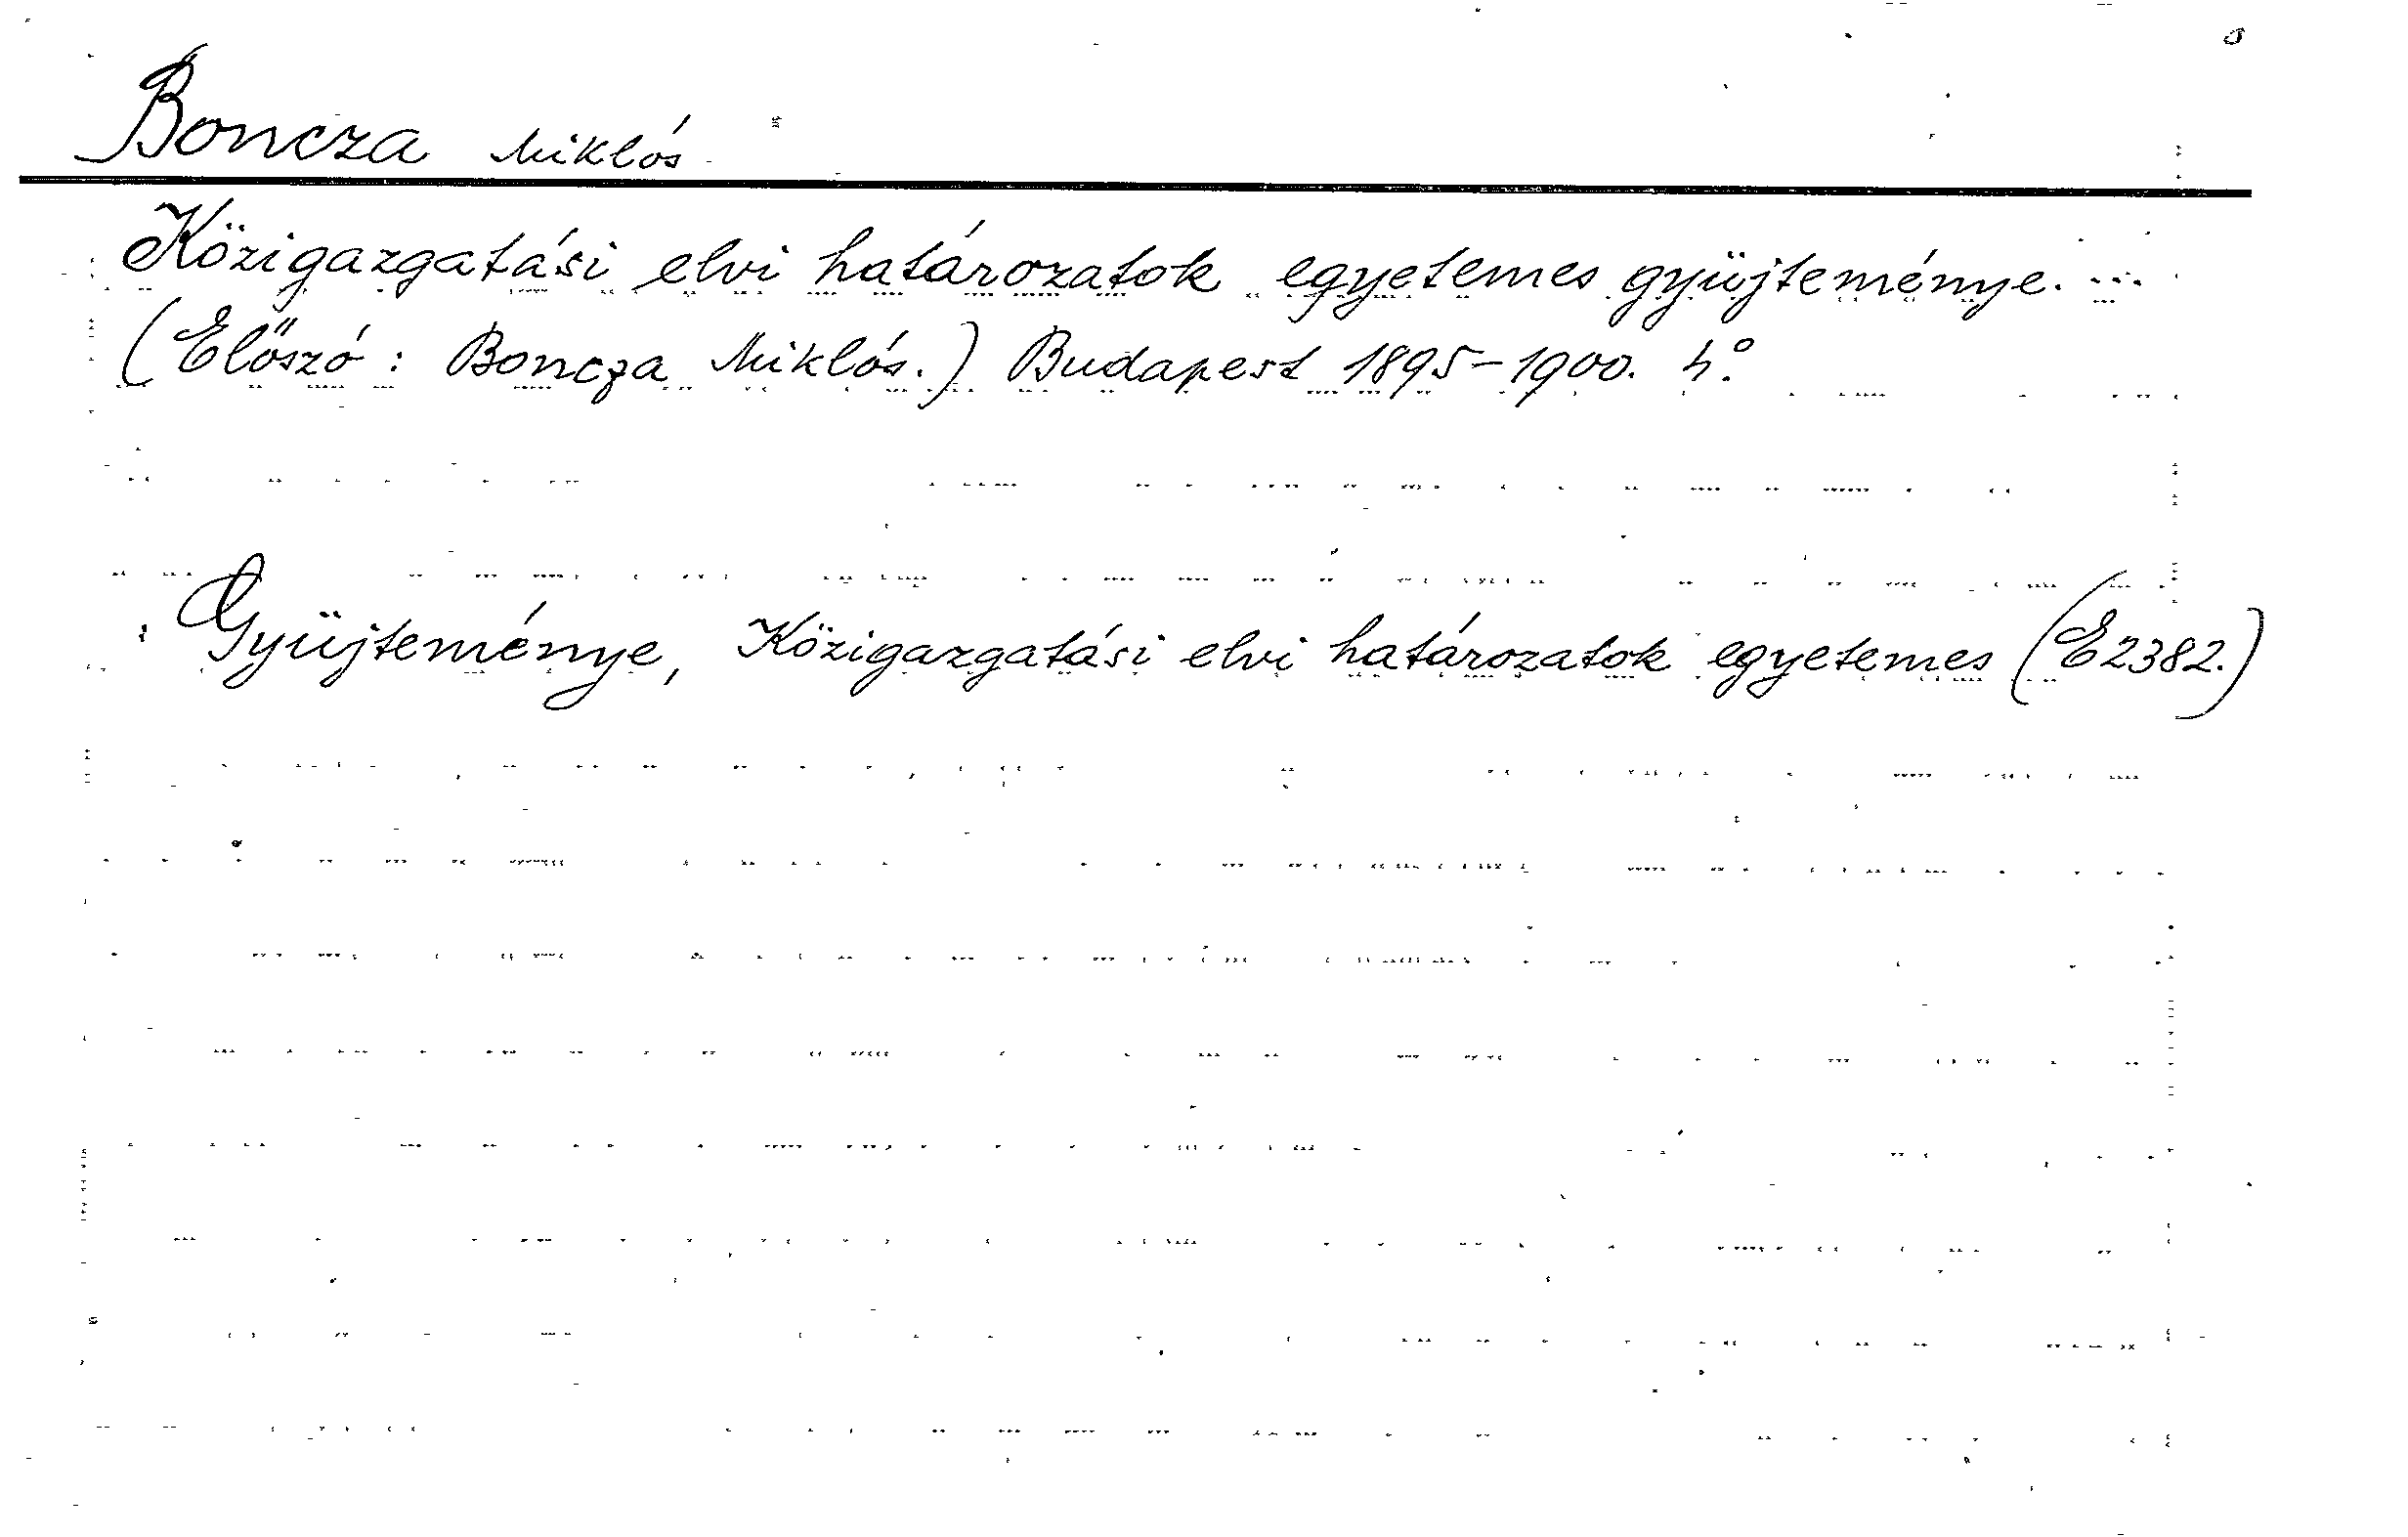 Boncza Miklós
Közigazgatási elvi határozatok egyetemes gyüjteménye. ...
(Előszó: Boncza Miklós.) Budapest 1895-1900. 4°.
Gyüjteménye, Közigazgatási elvi határozatok egyetemes (E2382.)